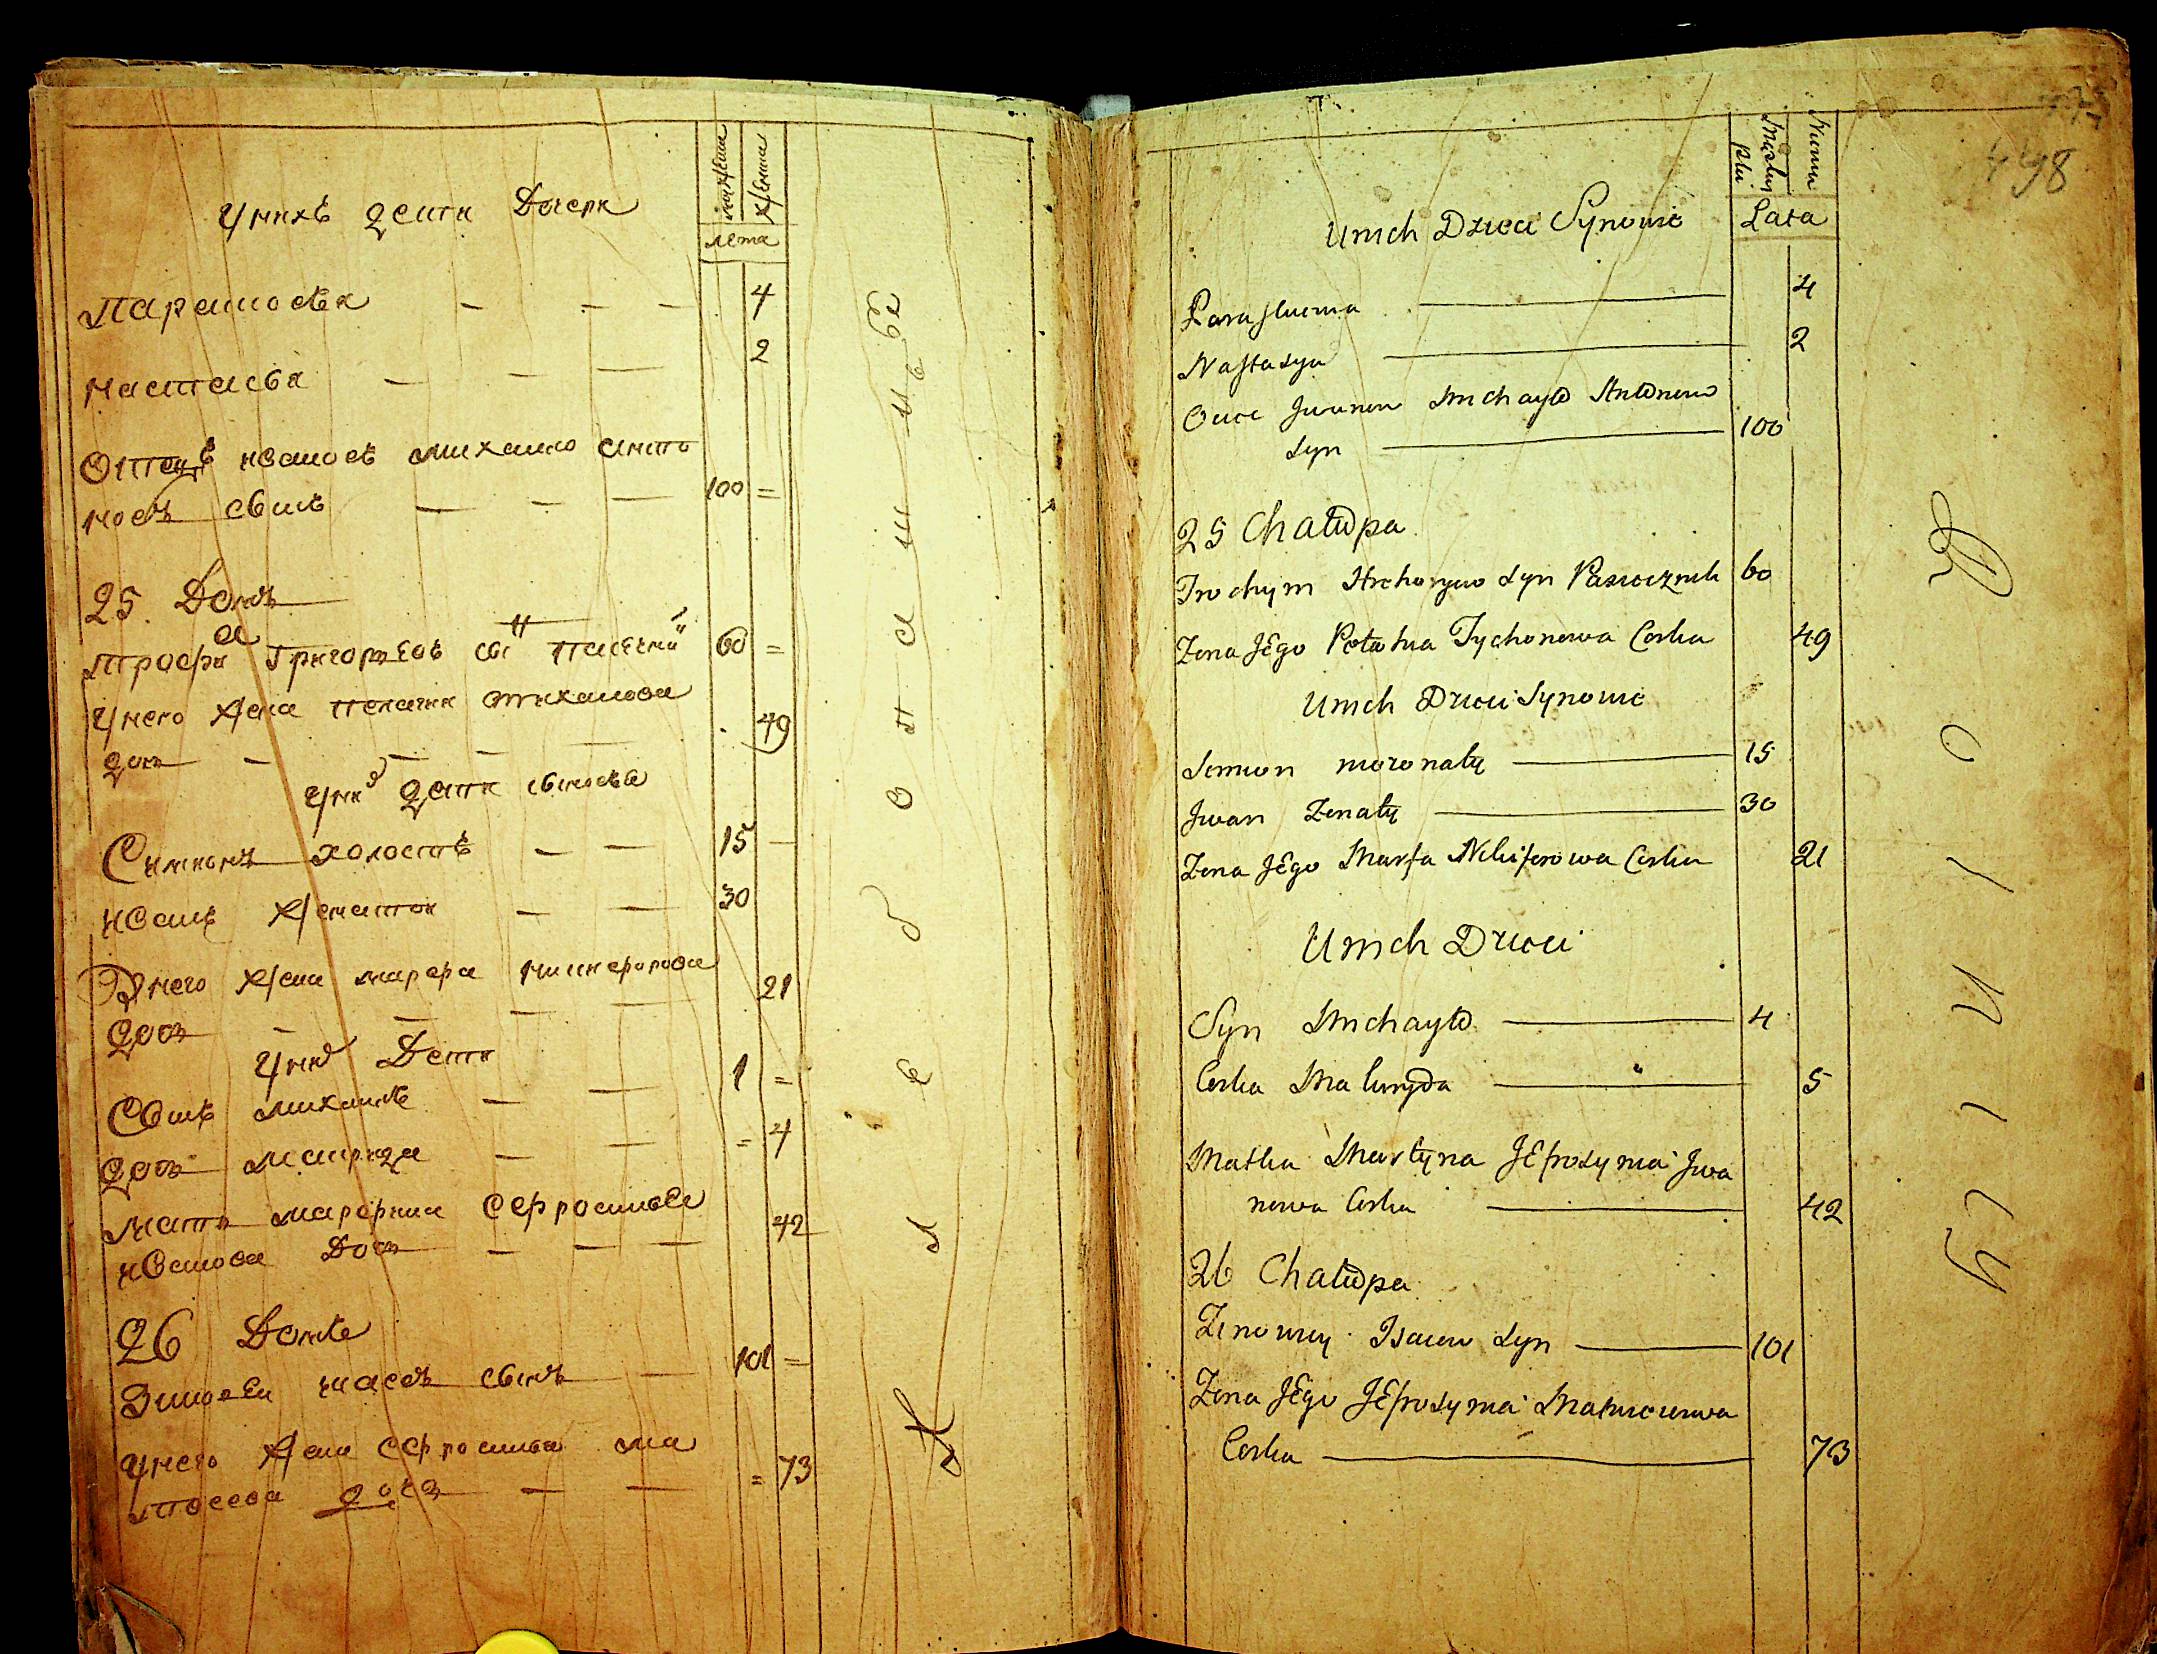 мужеска
женска
лета
У них дети Дочери
Параскевя 4
Настасья 2
Отецъ ивановъ михаило Анто
новъ сынъ 100 =
25. Домъ
Трофи Григорьевъ сы Пасечни 60 =
У него жена Пелагия тиханова
дочь 49
У них дети сыновья
Симионъ холостъ 15 —
иванъ женатои 30
У него жена марфа никифорова
дочь 21
У них Дети
Сынъ михаилъ 1 =
дочь маирида = 4
мать марфина Ефросинья
иванова Дочь 42
26 Домъ
Зиновеи исаевъ сынъ 101 =
У него жена Ефросинья ма
тоеева дочь = 73
498
Lata
Unich Dzieci Synowie
Paraskiewia 4
Nastasya 2
Ociec Iwanow Michayło Antonow
Syn 100
25 Chałupa
Trochym Hrehoryiw Syn Pasiecznik 60
Zona JEgo Pełahia Tychonowa Corka 49
Unich Dzieci Synowie
Simion niezonaty 15
Jwan Zonaty 30
Zona JEgo Marfa Nikiforowa Corka 21
Unich Dzieci
Syn Michayło 4
Corka Małunyda 5
Matka Martyna JEfrosynia Jwa
nowa Corka 42
26 Chałupa
Zinowiy Isaiew Syn 101
Zona JEgo JEfrosynia Matwieiewa
Corka 73